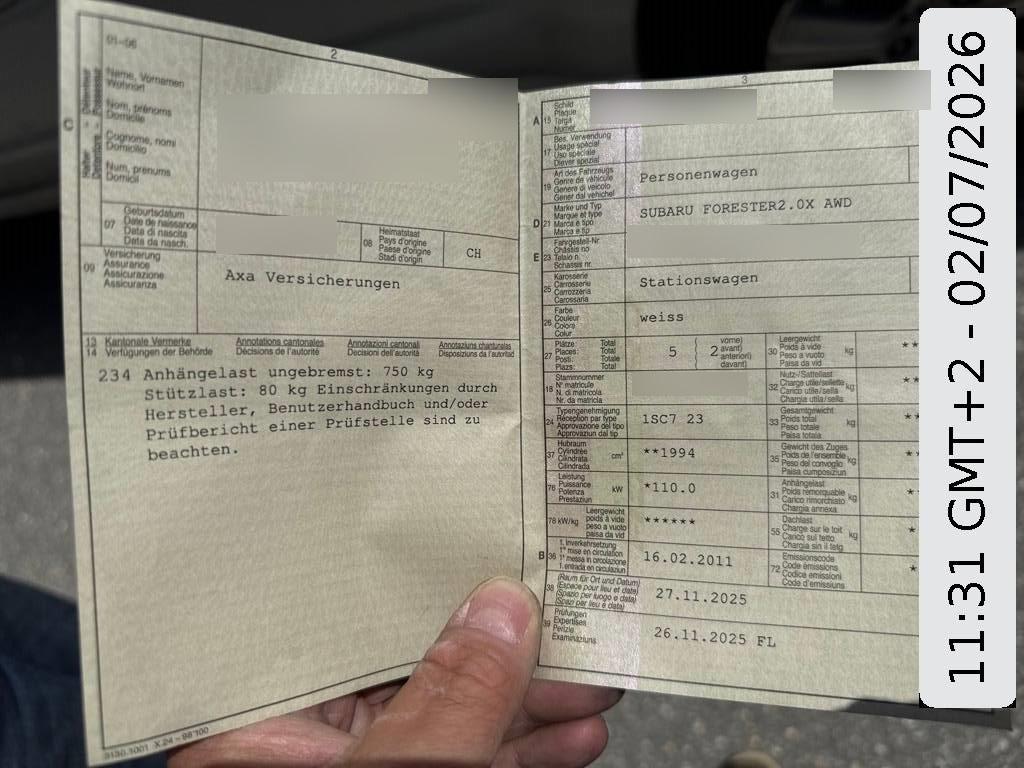 2
01-06
C
Halter
Détenteur
Detentore
Possessur
Name, Vornamen
Wohnort
Nom, prénoms
Domicile
Cognome, nomi
Domicilio
Num, prenums
Domicil
07
Geburtsdatum
Date de naissance
Data di nascita
Data da nasch.
08
Heimatstaat
Pays d'origine
Paese d'origine
Stadi d'origin
CH
09
Versicherung
Assurance
Assicurazione
Assicuranza
Axa Versicherungen
13 Kantonale Vermerke Annotations cantonales Annotazioni cantonali Annotaziuns chantunalas
14 Verfügungen der Behörde Décisions de l'autorité Decisioni dell'autorità Disposiziuns da l'autoritad
234 Anhängelast ungebremst: 750 kg
Stützlast: 80 kg Einschränkungen durch
Hersteller, Benutzerhandbuch und/oder
Prüfbericht einer Prüfstelle sind zu
beachten.
3
A 15
Schild
Plaque
Targa
Numer
17
Bes. Verwendung
Usage spécial
Uso speciale
Diever spezial
19
Art des Fahrzeugs
Genre de véhicule
Genere di veicolo
Gener dal vehichel
Personenwagen
D 21
Marke und Typ
Marque et type
Marca e tipo
Marca e tip
SUBARU FORESTER2.0X AWD
E 23
Fahrgestell-Nr.
Châssis no
Telaio n.
Schassis nr.
25
Karosserie
Carrosserie
Carrozzeria
Carossaria
Stationswagen
26
Farbe
Couleur
Colore
Colur
weiss
27
Plätze: Total
Places: Total
Posti: Totale
Plazs: Total
5 ( 2
vorne)
avant)
anteriori)
davant)
30
Leergewicht
Poids à vide
Peso a vuoto
Paisa da vid
kg
**
18
Stammnummer
N° matricule
N. di matricola
Nr. da matricla
32
Nutz-/Sattellast
Charge utile/sellette
Carico utile/sella
Chargia utila/sella
kg
**
24
Typengenehmigung
Réception par type
Approvazione del tipo
Approvaziun dal tip
1SC7 23
33
Gesamtgewicht
Poids total
Peso totale
Paisa totala
kg
**
37
Hubraum
Cylindrée
Cilindrata
Cilindrada
cm³
**1994
35
Gewicht des Zuges
Poids de l'ensemble
Peso del convoglio
Paisa cumposiziun
kg
**
76
Leistung
Puissance
Potenza
Prestaziun
kW
*110.0
31
Anhängelast
Poids remorquable
Carico rimorchiato
Chargia annexa
kg
*
78 kW/kg
Leergewicht
poids à vide
peso a vuoto
paisa da vid
******
55
Dachlast
Charge sur le toit
Carico sul tetto
Chargia sin il tetg
kg
*
B 36
1. Inverkehrsetzung
1re mise en circulation
1a messa in circolazione
1. entrada en circulaziun
16.02.2011
72
Emissionscode
Code émissions
Codice emissioni
Code d'emissiuns
*
38
(Raum für Ort und Datum)
(Espace pour lieu et date)
(Spazio per luogo e data)
(Spazi per lieu e data)
27.11.2025
39
Prüfungen
Expertises
Perizie
Examinaziuns
26.11.2025 FL
11:31 GMT+2 - 02/07/2026